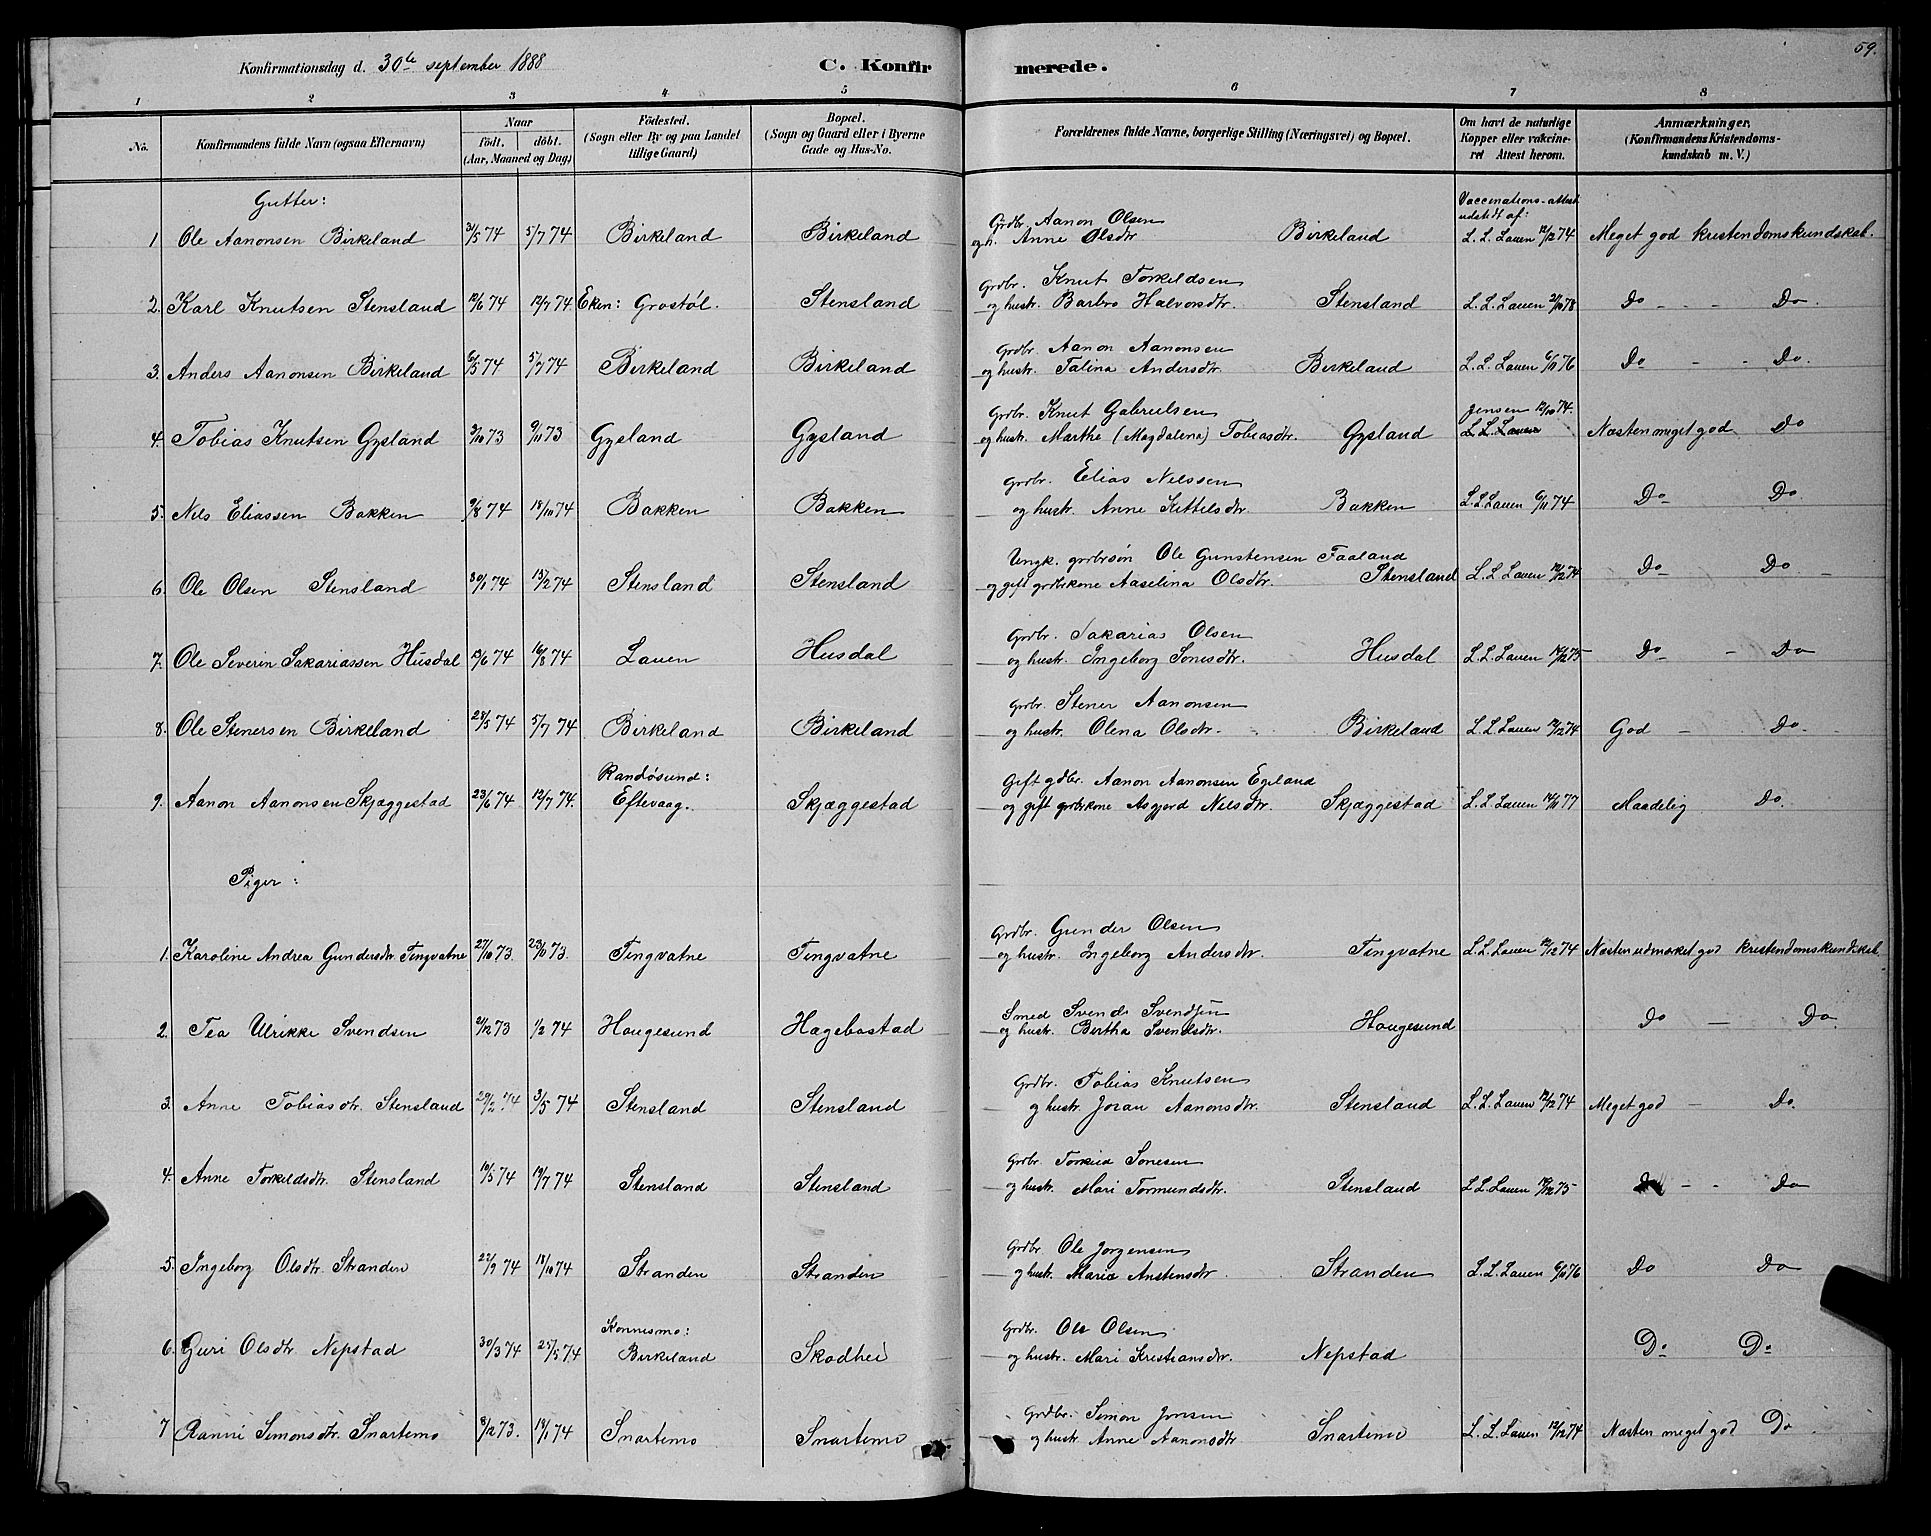 59.
Konfirmationsdag d. 30te september 1888 C. Konfirmerede.
1 2 3 4 5 6 7 8
No. Konfirmandens fulde Navn (ogsaa Efternavn) Naar födt. döbt. (Aar, Maaned og Dag) Födested. (Sogn eller By og paa Landet tillige Gaard) Bopæl. (Sogn og Gaard eller i Byerne Gade og Hus-No. Forældrenes fulde Navne, borgerlige Stilling (Næringsvei) og Bopæl. Om havt de naturlige Kopper eller vakcineret Attest herom. Anmærkninger. (Konfirmandens Kristendomskundskab m. V.)
Gutter:
Vaccinations-attest udstedt af:
1 Ole Aanonsen Birkeland 31/5 74 5/7 74 Birkeland Birkeland Grdbr. Aanon Olsen og h. Anne Olsdtr Birkeland L. L. Lauen 12/12 74 Meget god kristendomskundskab.
2. Karl Knutsen Stensland 12/6 74 12/7 74 Eken: Grostøl. Stensland Grdbr. Knut Torkeldsen og hustr. Barbro Halvorsdtr. Stensland L. L. Lauen 21/10 78 Do - - Do.
3. Anders Aanonsen Birkeland 6/5 74 5/7 74 Birkeland Birkeland Grdbr. Aanon Aanonsen og hustr. Talina Andersdtr. Birkeland L. L. Lauen 6/11 76 Do - - Do.
4. Tobias Knutsen Gysland 3/10 73 9/11 73 Gysland Gysland Grdbr. Knut Gabrielsen og hustr. Marthe (Magdalena) Tobiasdtr. Gysland Jensen 12/10 74. L. L. Lauen Næsten meget god Do
5. Nils Eliassen Bakken 9/8 74 18/10 74 Bakken Bakken Grdbr. Elias Nilssen og hustr. Anne Kittelsdtr. Bakken L. L. Lauen 6/11 74 Do - Do
6. Ole Olsen Stensland 30/1 74 15/2 74 Stensland Stensland Ungk. grdbrsøn Ole Gunstensen Faaland og gift grdbrkone Aaselina Olsdtr. Stensland L. L. Lauen 12/12 74 Do - Do -
7. Ole Severin Sakariassen Husdal 13/6 74 16/8 74 Lauen Husdal Grdbr. Sakarias Olsen og hustr. Ingeborg Sonesdtr. Husdal L. L. Lauen 14/12 75 Do - Do
8. Ole Stenersen Birkeland 28/5 74 5/7 74 Birkeland Birkeland Grdbr. Stener Aanonsen og hustr. Olena Olsdtr. Birkeland L. L. Lauen 12/12 74 God - Do.
9. Aanon Aanonsen Skjæggestad 23/6 74 12/7 74. Randøsund: Eftevaag. Skjæggestad Gift gdbr. Aanon Aanonsen Egeland og gift grdbrkone Asgjord Nilsdtr. Skjæggestad L. L. Lauen 14/11 77 Maadelig Do.
Piger:
1. Karoline Andrea Gundersdtr. Tingvatne 27/10 73. 23/11 73. Tingvatne Tingvatne Grdbr. Gunder Olsen og hustr. Ingeborg Andersdtr. Tingvatne L. L. Lauen 12/12 74 Næsten udmærket god kristendomskundskab.
2. Tea Ulrikke Svendsen 21/12 73 1/2 74 Hougesund Hægebostad Smed Svend Svendsen og hustr. Bertha Svendsdtr. Hougesund Do - Do.
3. Anne Tobiasdtr. Stensland 20/2 74 3/5 74 Stensland Stensland Grdbr. Tobias Knutsen og hustr. Joran Aanonsdtr. Stensland L. L. Lauen 12/12 74 Meget god - Do.
4. Anne Torkildsdtr. Stensland 10/5 74 19/7 74 Stensland Stensland Grdbr. Torkild Sonesen og hustr. Mari Tormundsdtr. Stensland L. L. Lauen 14/12 75 Do - - Do
5. Ingeborg Olsdtr. Stranden 22/9 74 18/10 74 Stranden Stranden Grdbr. Ole Jørgensen og hustr. Maria Anstensdtr. Stranden L. L. Lauen 6/11 76 Do Do
6. Guri Olsdtr. Nepstad 30/3 74 25/5 74 Konnesmo: Birkeland Skodhei Grdbr. Ole Olsen og hustr. Mari Kristiansdtr. Nepstad Do Do
7 Ranni Simonsdtr. Snartemo 8/12 73. 18/1 74 Snartemo Snartemo Grdbr. Simon Jonsen og hustr. Anne Aanonsdtr. Snartemo L. L. Lauen 12/12 74 Næsten meget god Do.